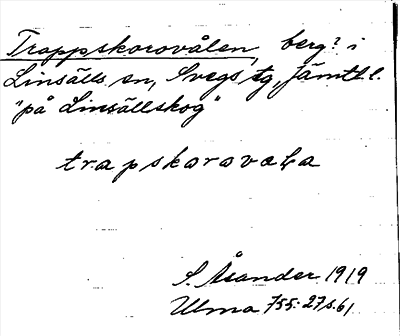 Trappskorovålen, berg? i
Linsälls sn, Svegs tg, Jämtl. l.
"på Linsällskog"
trapskorovaļa
S. Åsander 1919
Ulma 755: 27 s. 61